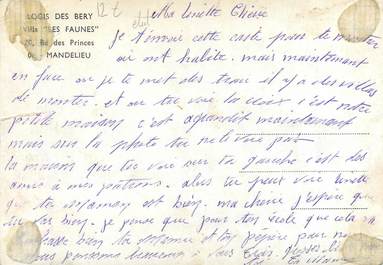 LOGIS DES BERY
Villa "LES FAUNES"
70, Bd des Princes
MANDELIEU
12 t
Ma Ginette Chérie
Je t'envoie cette carte pour te montrer
où on habite. mais maintenant
en face ou je te met des il y a des villas
de montée. et ou tu voie la croix. c'est notre
petite maison c'est agrandit maintenant
mais sur la photo tu ne le voie pas
la maison que tu voie sur ta gauche c'est des
amis à mes patrons. alors tu peut voir Ginette
que ta maman est bien. ma cherie j'espère que
tu va bien. je pense que pour ton école que cela
bien ta maman et ton pépère par
nous pensons beaucoup à vous trois.